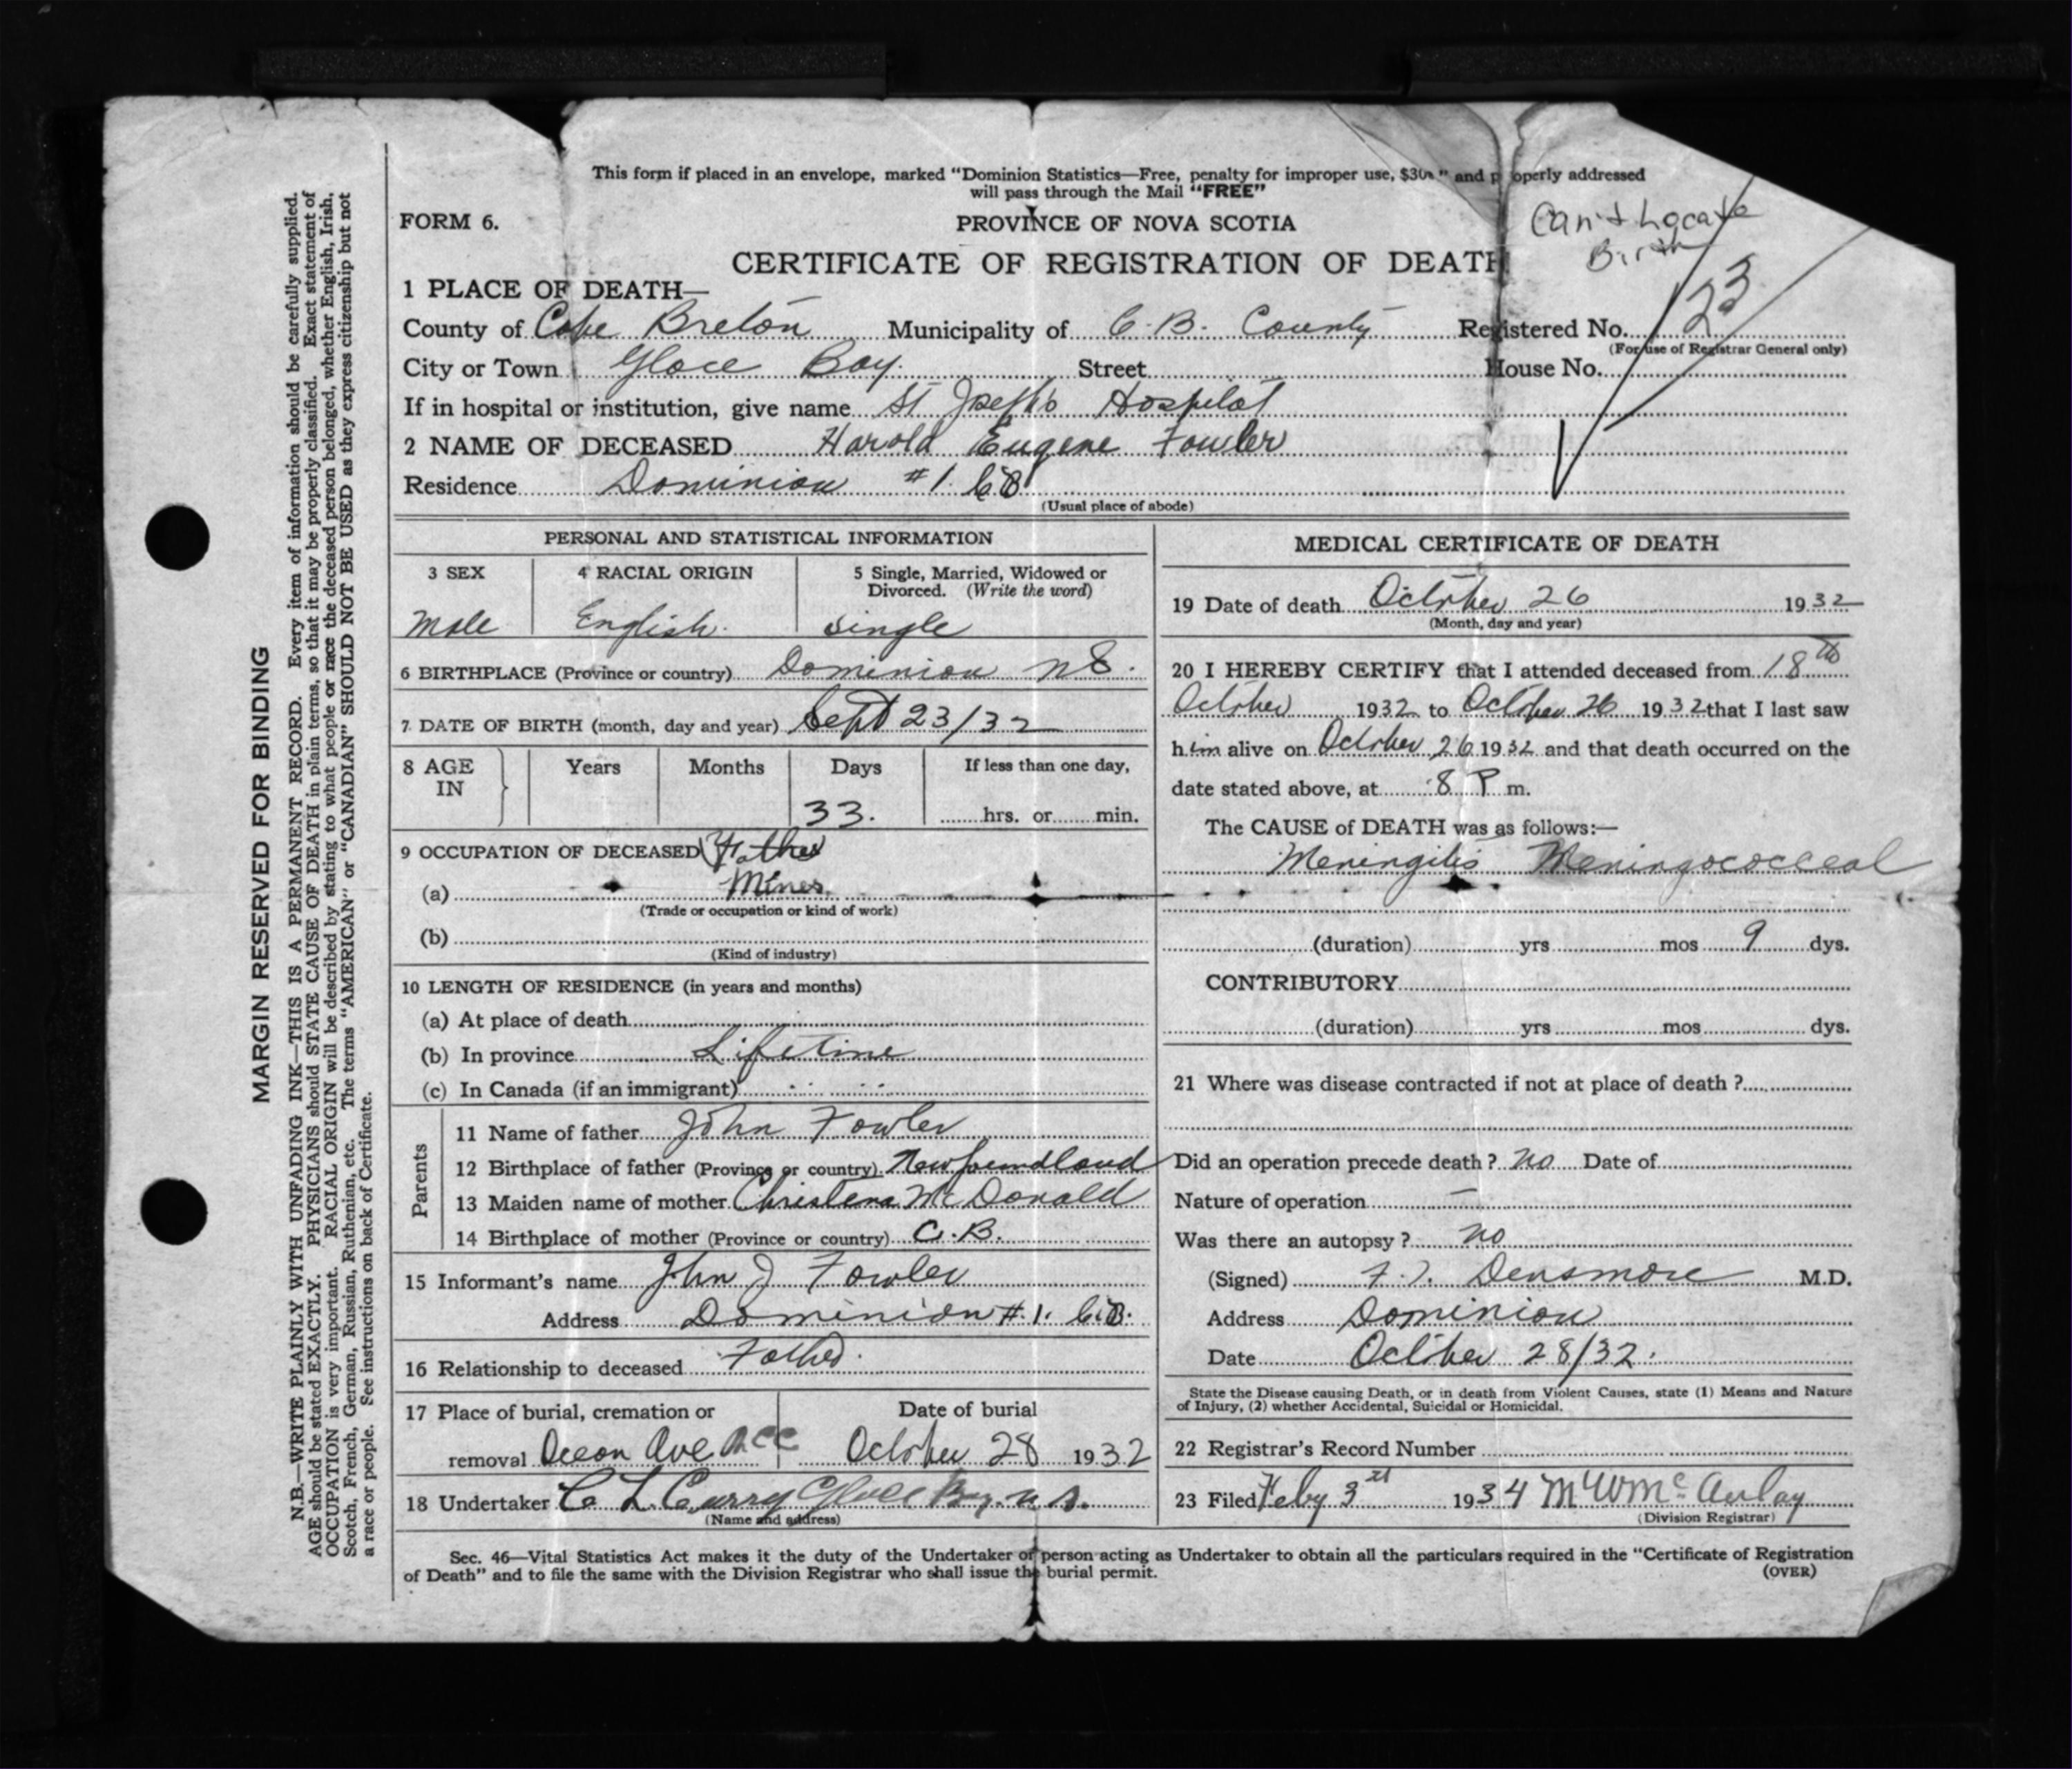 This form if placed in an envelope, marked "Dominion Statistics—Free, penalty for improper use, $300" and properly addressed
will pass through the Mail "FREE"
FORM 6.
PROVINCE OF NOVA SCOTIA
Can't Locate
Birth
CERTIFICATE OF REGISTRATION OF DEATH
1 PLACE OF DEATH—
County of Cape Breton Municipality of C.B. County Registered No. 23
(For use of Registrar General only)
City or Town Glace Bay. Street House No.
If in hospital or institution, give name St Josephs Hospital
2 NAME OF DECEASED Harold Eugene Fowler
Residence Dominion #1 C.B
(Usual place of abode)
PERSONAL AND STATISTICAL INFORMATION
3 SEX
Male
4 RACIAL ORIGIN
English.
5 Single, Married, Widowed or
Divorced. (Write the word)
Single
6 BIRTHPLACE (Province or country) Dominion NS.
7. DATE OF BIRTH (month, day and year) Sept 23/32
8 AGE IN
Years Months Days If less than one day,
33. hrs. or min.
9 OCCUPATION OF DECEASED Father
(a) Miner
(Trade or occupation or kind of work)
(b)
(Kind of industry)
10 LENGTH OF RESIDENCE (in years and months)
(a) At place of death
(b) In province Lifetime
(c) In Canada (if an immigrant)
Parents
11 Name of father John Fowler
12 Birthplace of father (Province or country) Newfoundland
13 Maiden name of mother Christena McDonald
14 Birthplace of mother (Province or country) C.B.
15 Informant's name John J Fowler
Address Dominion #.1. C.B.
16 Relationship to deceased Father.
17 Place of burial, cremation or
removal Ocean Ave
Date of burial
October 28 1932
18 Undertaker C L Curry Glace Bay. N.S.
(Name and address)
MEDICAL CERTIFICATE OF DEATH
19 Date of death October 26 1932
(Month, day and year)
20 I HEREBY CERTIFY that I attended deceased from 18th
October 1932 to October 26 1932 that I last saw
him alive on October 26 1932 and that death occurred on the
date stated above, at 8 P m.
The CAUSE of DEATH was as follows:—
Meningitis Meningococceal
(duration) yrs mos 9 dys.
CONTRIBUTORY
(duration) yrs mos dys.
21 Where was disease contracted if not at place of death ?
Did an operation precede death ? no Date of
Nature of operation —
Was there an autopsy ? no
(Signed) Densmore M.D.
Address Dominion
Date October 28/32.
State the Disease causing Death, or in death from Violent Causes, state (1) Means and Nature
of Injury, (2) whether Accidental, Suicidal or Homicidal.
22 Registrar's Record Number
23 Filed Feby 3rd 1934 McAulay
(Division Registrar)
Sec. 46—Vital Statistics Act makes it the duty of the Undertaker or person acting as Undertaker to obtain all the particulars required in the "Certificate of Registration
of Death" and to file the same with the Division Registrar who shall issue the burial permit.
(OVER)
MARGIN RESERVED FOR BINDING
N.B.—WRITE PLAINLY WITH UNFADING INK—THIS IS A PERMANENT RECORD. Every item of information should be carefully supplied.
AGE should be stated EXACTLY. PHYSICIANS should STATE CAUSE OF DEATH in plain terms, so that it may be properly classified. Exact statement of
OCCUPATION is very important. RACIAL ORIGIN will be described by stating to what people or race the deceased person belonged, whether English, Irish,
Scotch, French, German, Russian, Ruthenian, etc. The terms "AMERICAN" or "CANADIAN" SHOULD NOT BE USED as they express citizenship but not
a race or people. See instructions on back of Certificate.